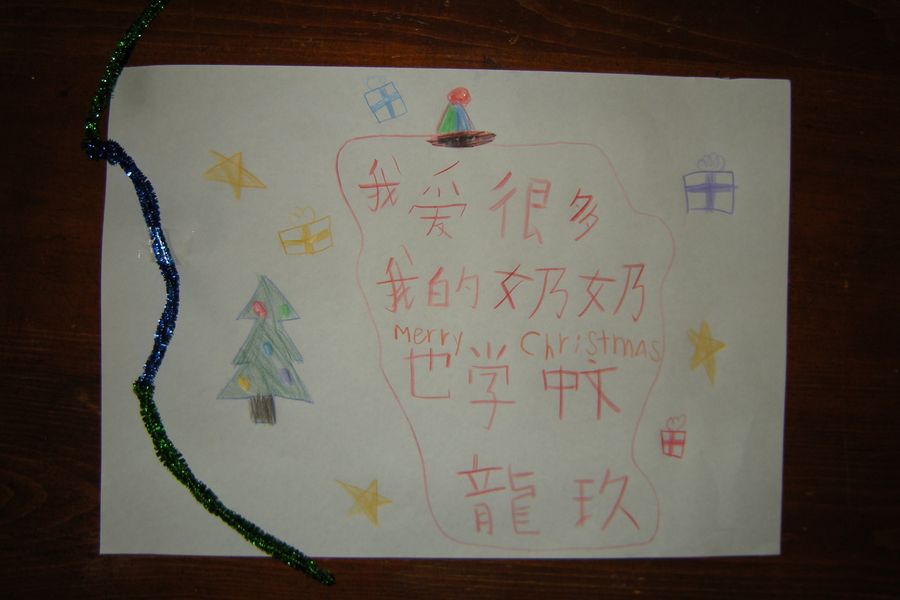 我爱很多
我的奶奶
Merry Christmas
也学中文
龍玖